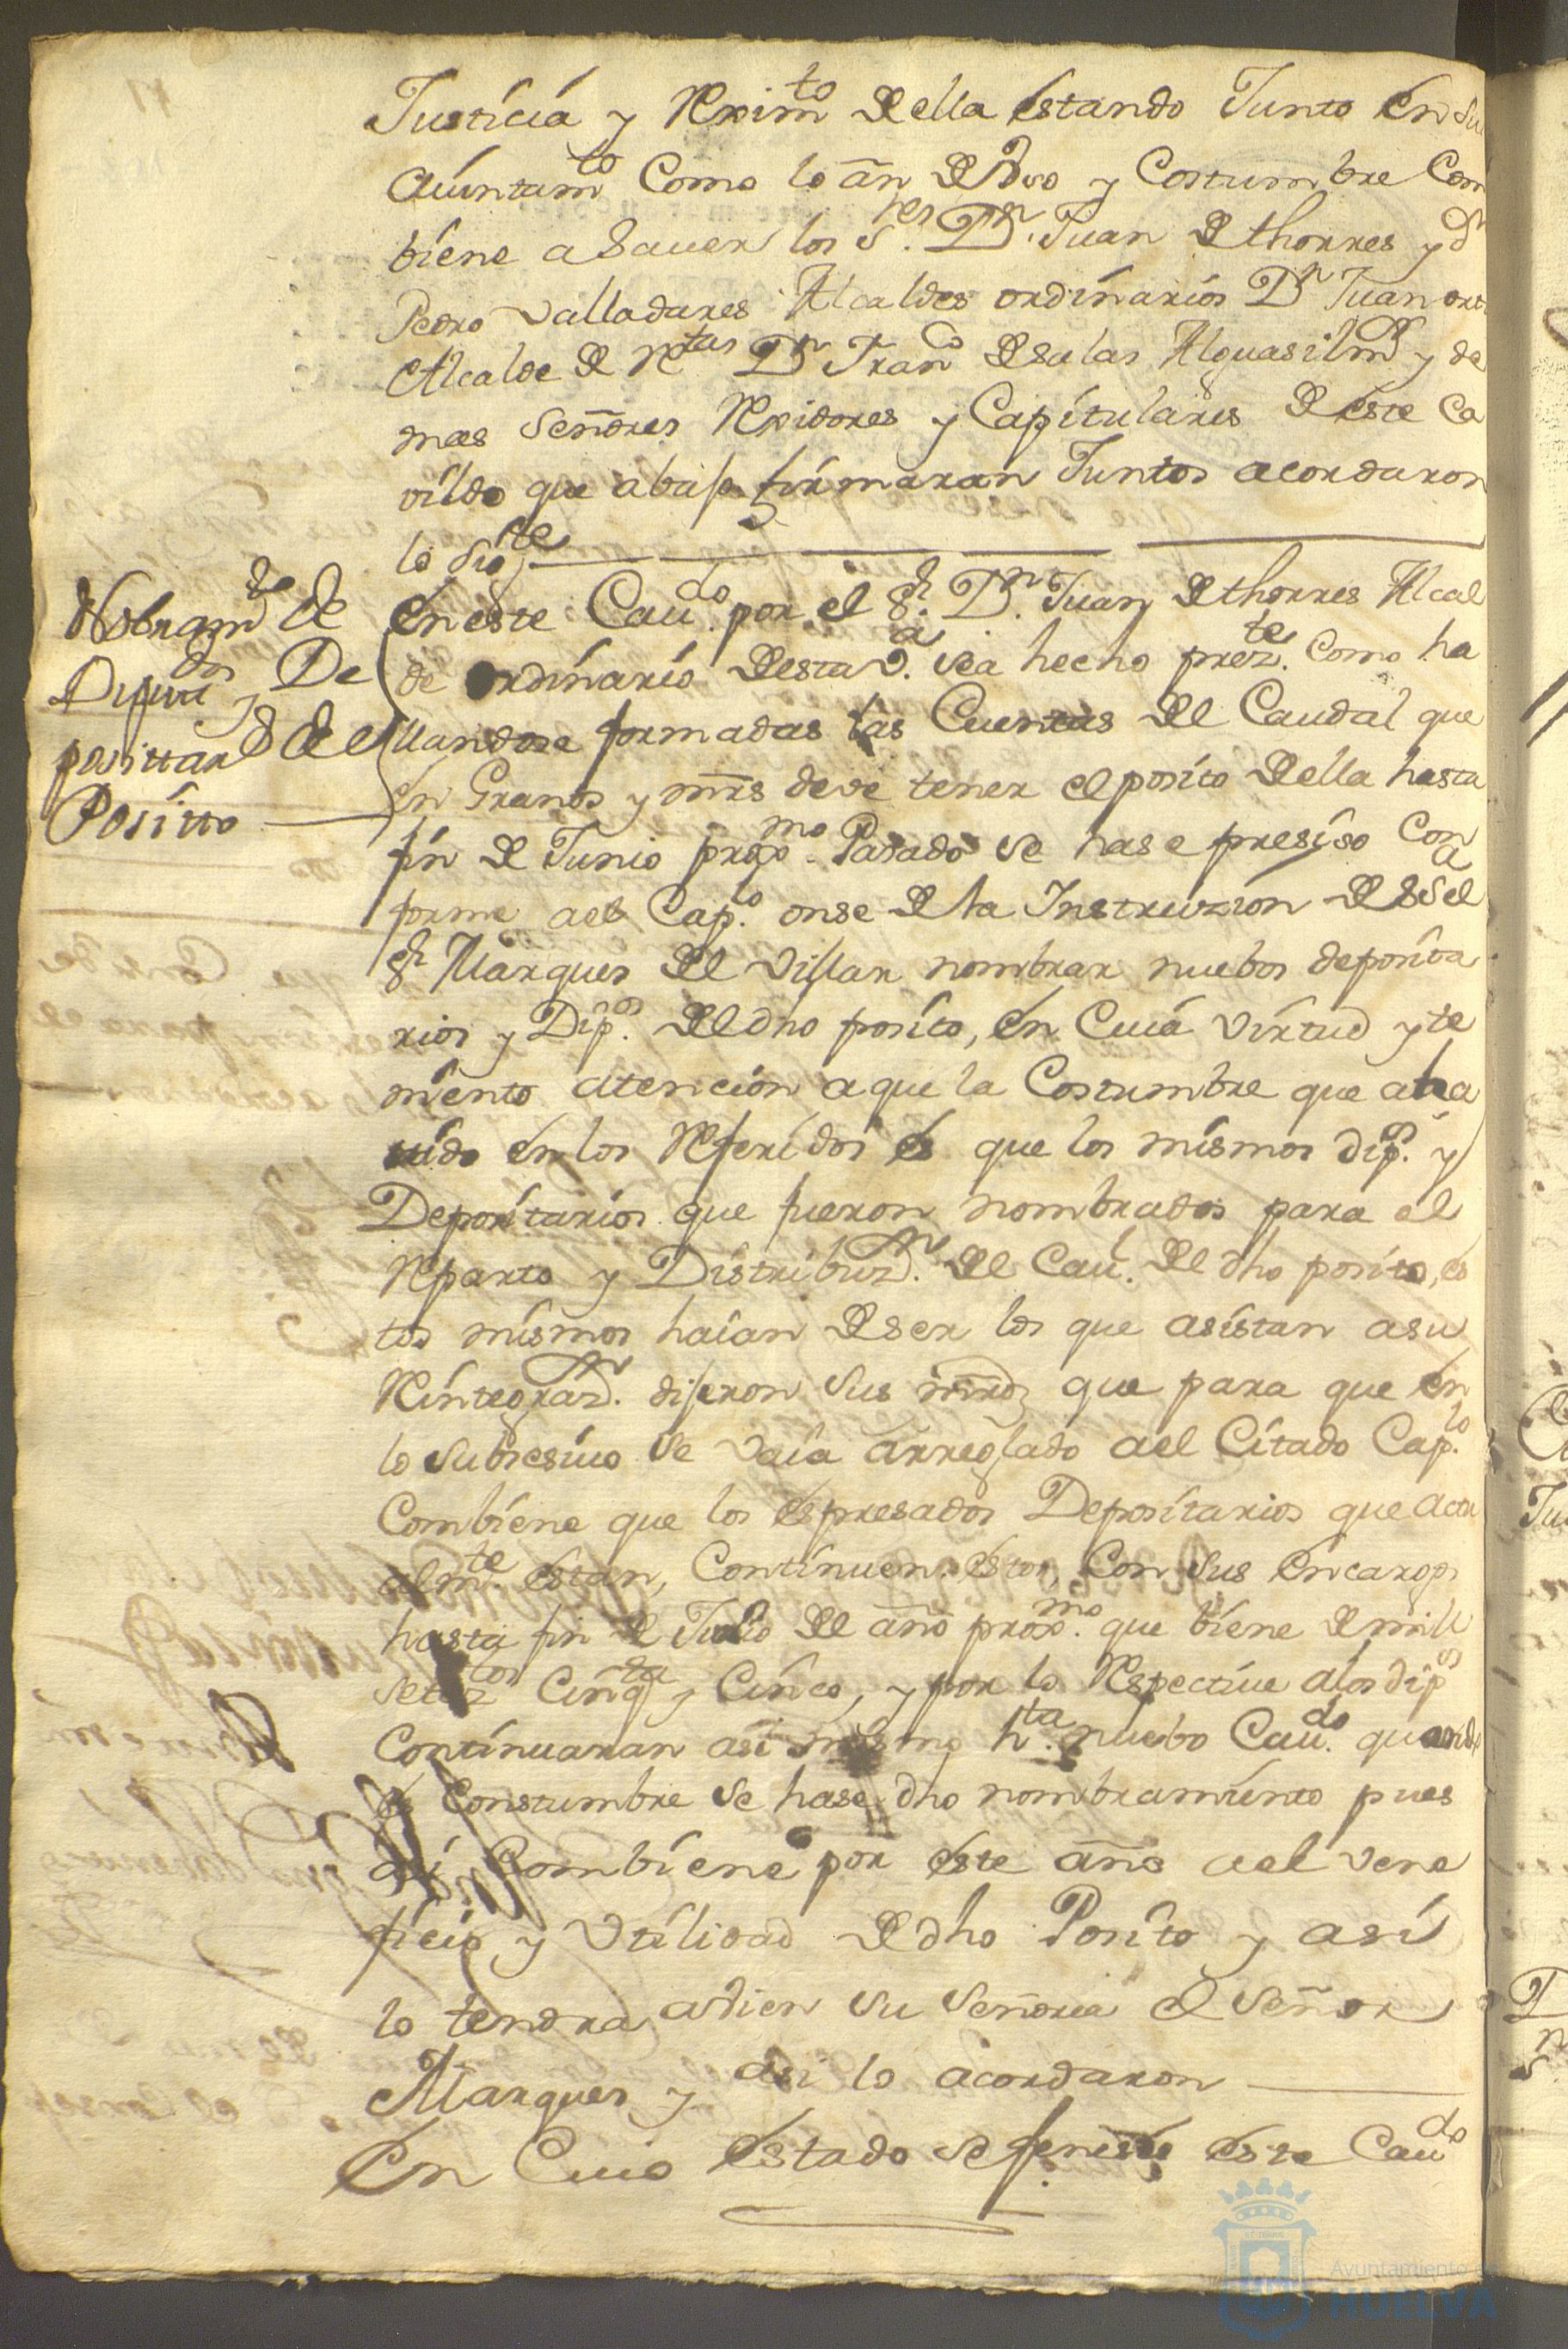 Justicia y Reximto de ella estando Junto en su
Aiuntamto Como lo an de Vso y Costumbre Com
biene a Sauer los Sres Dn. Juan de thorres y dn
Pedro Valladares Alcaldes ordinarios Dn Juan
Alcalde de Rtas Dn Franco de Salas Alguasil mr y de
mas Señores Rexidores y Capitulares de este Ca
vildo que abajo firmaran Juntos acordaron
lo sigte
Nobramto de
Diputdos y De
positar de el
Positto
En este Caudo por el Sr. Dn. Juan de thorres Alcal
de ordinario de esta Va. se a hecho preste. Como ha
llandose formadas las Cuentas de el Caudal que
en Granos y mrs deve tener el posito de ella hasta
fin de Junio proxmo. Pasado se hase presiso Con
forme a el Capo. onse de la Instruzion de Sa el
Sr Marques de el Villar nombrar nuebos deposita
rios y Dips. de el dho posito, en Cuia virtud y te
niento atencion a que la Costumbre que a ha
uido en los Referidos es que los mismos dips. y
Depositarios que fueron nombrados para el
Reparto y Distribuzn. de el Caul. de el dho posito, es
tos mismos haian de ser los que asistan a su
Reintegrazn. dijeron sus mrds que para que en
lo subsesiuo se vaia arreglado a el Citado Caplo.
Combiene que los espresados Depositarios que actu
almte. estan, Continuen estos, Con sus encargos
hasta fin de Julio de el año proxmo. que biene de mill
setezos Cinqta y Cinco, y por lo Respectiue a los dips
Continuaran asi mismo hta. nuebo Caudo. quando
es Constumbre se hase dho nombramiento pues
asi Combiene por este año a el vene
ficio y Vtilidad de dho Posito y asi
lo tendra a dien su Señoria el Señor
Marques y asi lo acordaron
En Cuio estado se feneste este Caudo
Ayuntamiento de
HUELVA